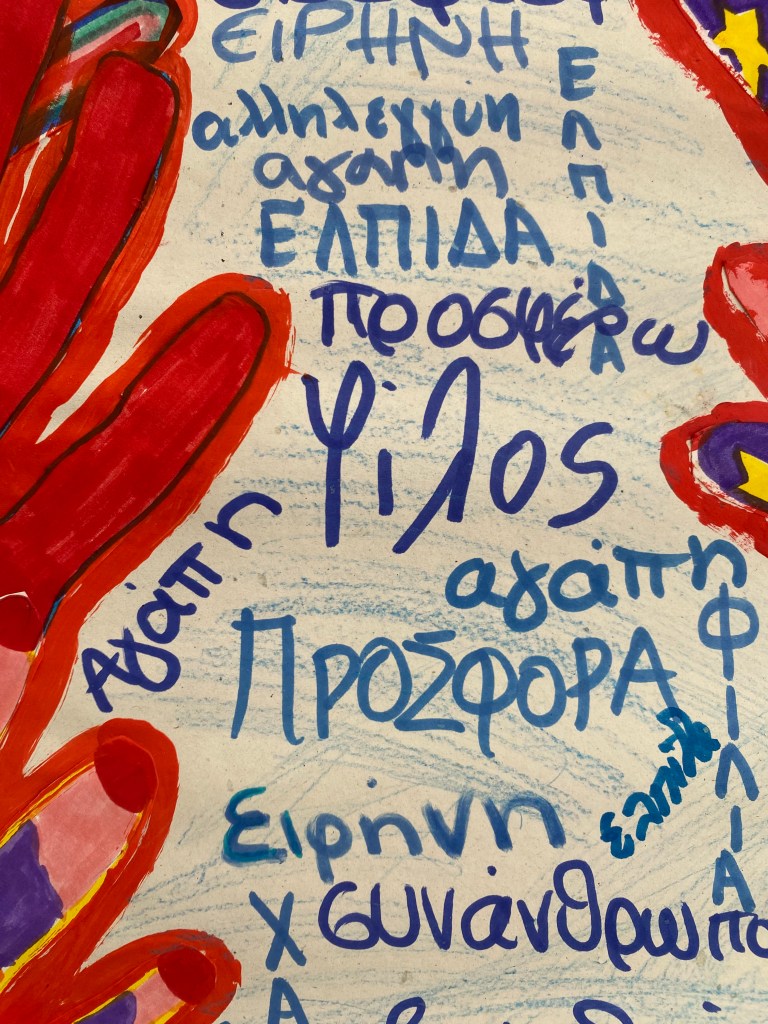 ΕΙΡΗΝΗ
ΕΛΠΙΔΑ
αλληλεγγυη
αγαπη
ΕΛΠΙΔΑ
προσφέρω
φίλος
Αγάπη
αγάπη
ΠΡΟΣΦΟΡΑ
ΦΙΛΙΑ
ελπίδα
ειρήνη
συνάνθρωπο
ΧΑ